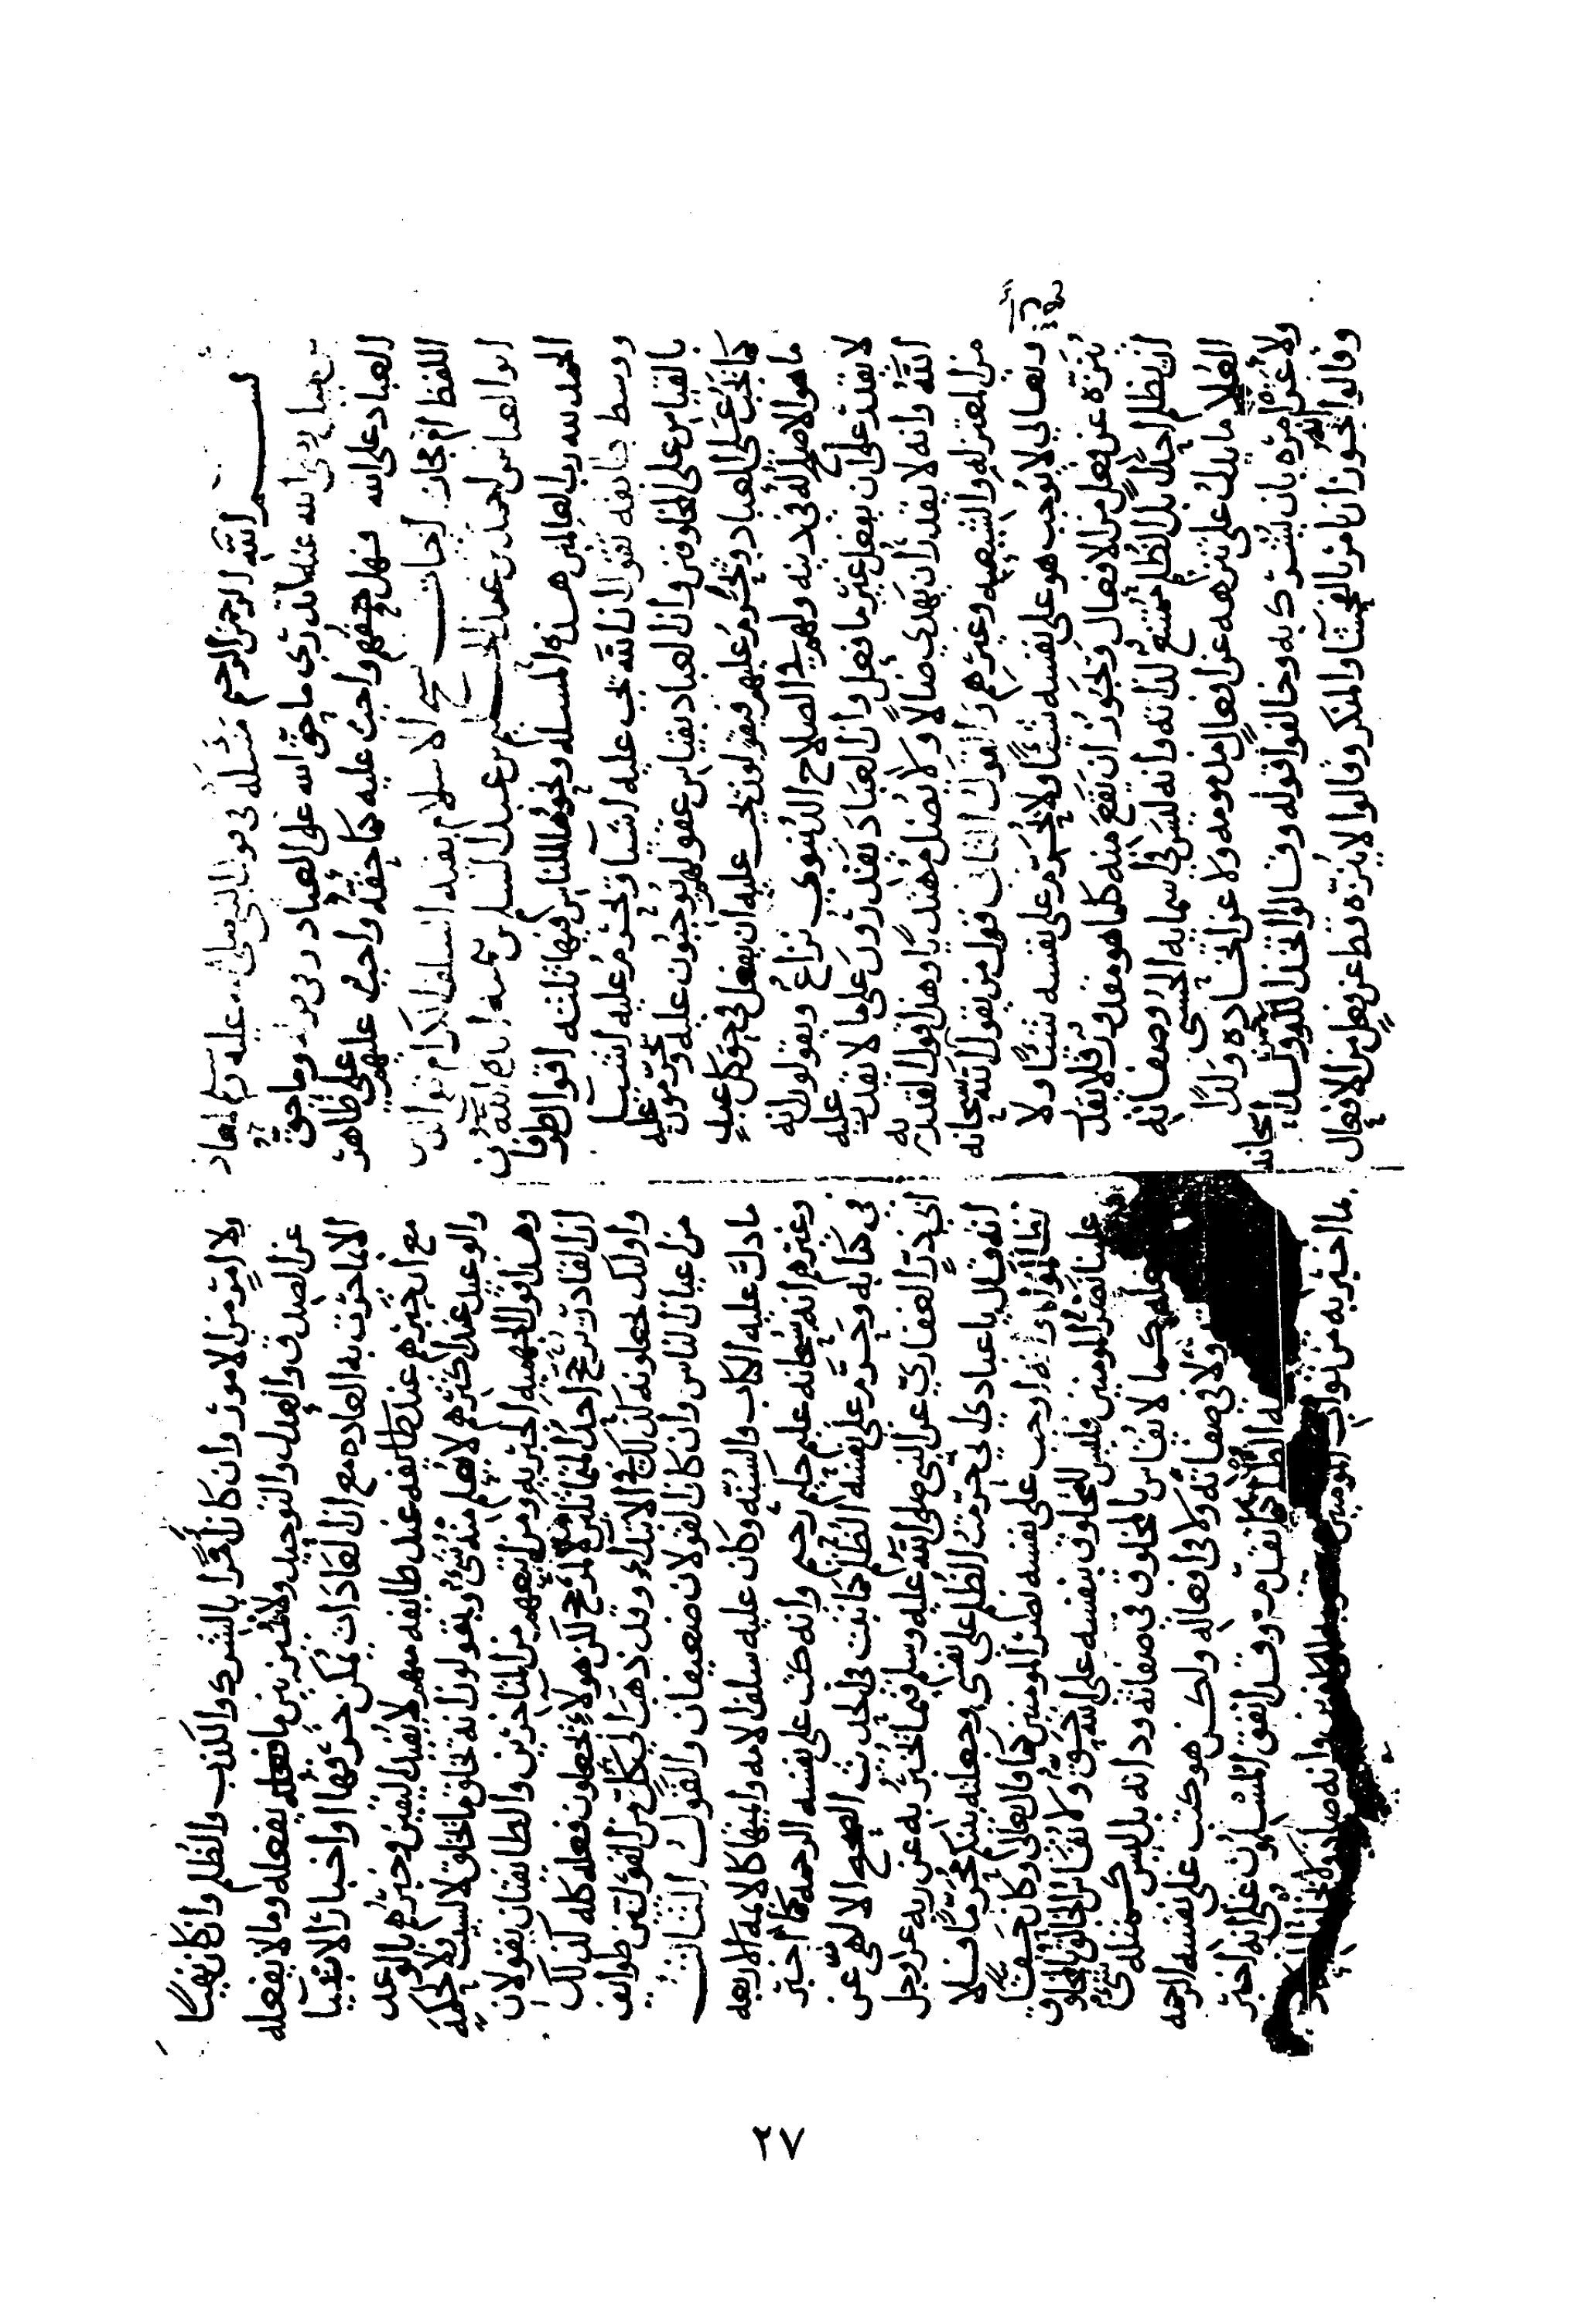 بسم الله الرحمن الرحيم مسئله في قول النبي صلى الله عليه وسلم لمعاذ
بن جبل رضي الله عنه اتدري ما حق الله على العباد وما حق
العباد على الله فهل حقهم واجب عليه كما حقه واجب عليهم على ظاهر
اللفظ ام مجاز اجاب شيخ الاسلام بقيه السلف الكرام تقي الدين
ابو العباس احمد بن عبد الحليم بن عبد السلام بن تيميه
الحمد لله رب العالمين هذه المسئله ونحوها للناس فيها ثلثه اقوال طرفان
ووسط طايفه تقول ان الله تجب عليه اشيا وتحرم عليه اشيا
بالقياس على المخلوقين وان العباد بقياس عقولهم يوجبون عليه ويحرمون عليه
كما تجب على العباد وتحرم عليهم فيقولون يجب عليه ان يفعل في حق كل عبد
ما هو الاصلح له في دينه ولهم في الصلاح الدنيوي نزاع ويقولون انه
لا يقدر على ان يفعل غير ما فعل وان العباد يقدرون على ما لا يقدر عليه
الله وانه لا يقدر ان يهدي ضالا ولا يضل مهتديا وهذا قول القدريه
من المعتزله والشيعه وغيرهم والقول الثاني قول من يقول انه سبحانه
وتعالى لا يوجب هو على نفسه شيئا ولا يحرم على نفسه شيئا ولا
ينزه عن فعل من الافعال وتجوز ان يقع منه كلما هو مقدور فلا يقدر
ان يظلم احدا بل الظلم ممتنع لذاته وانه ليس في اسمايه الحسنى وصفاته
العلا ما يدل على تنزهه عن افعال مذمومه ولا عن اتخاذه ولدا سبحانه
ولا عن امره بان يشرك به وخالفوا قوله وقالوا اتخذ الرحمن ولدا
وقالوا يجوز ان يامر الله بالفحشا والمنكر وقالوا لا ينزه قط عن فعل من الافعال
ولا امر من الامور وان كان امرا بالشرك والكذب والظلم وان كان نهيا
عن الصدق والعدل والتوحيد ولا تميز بين ما يفعله وما لا يفعله
الا بما جرت به العاده مع ان العادات يمكن خرقها او اخبار الانبيا
مع ان خبرهم عند طايفه عند طايفه منهم لا يفيد اليقين وخبرهم بالوعد
والوعيد عند اكثرهم لا يعلم منه شيء ويقولون انه تخلق ما تخلق لا لسبب ولا لحكمه
وهذا قول الجهميه الجبريه ومن اتبعهم من المتاخرين والطايفتان يقولان
ان القادر يرجح احد المتماثلين بلا مرجح لكن هولاء يجعلون فعله كله كذلك
واوليك يجعلونه كذلك في الابتداء وقد ذهب الى كل من القولين طوايف
من اعيان الناس وان كان القولان ضعيفان والقول الثالث
ما دل عليه الكتاب والسنه وكان عليه سلف الامه وايمتها كالايمه الاربعه
وغيرهم انه سبحانه عليم حكيم رحيم وانه كتب على نفسه الرحمه كما اخبر
في كتابه وحرم على نفسه الظلم كما ثبت في الحديث الصحيح الالهي عن
ابي ذر الغفاري عن النبي صلى الله عليه وسلم فيما يخبر به عن ربه عز وجل
انه قال يا عبادي اني حرمت الظلم على نفسي وجعلته بينكم محرما فلا
تظالموا اوجب على نفسه نصر المومنين كما قال تعالى وكان حقا
علينا نصر المومنين فليس للمخلوق بنفسه على الله حق ولا يقاس الخالق بالمخلوق
كما لا يقاس بالمخلوق في صفاته وذاته بل ليس كمثله شيء
ولا في صفاته ولا في افعاله ولكن هو كتب على نفسه الرحمه
كما تقدم وقد اتفق المسلمون على انه اخبر
بما اخبر به من ثواب المومنين وانه صادق
٢٧